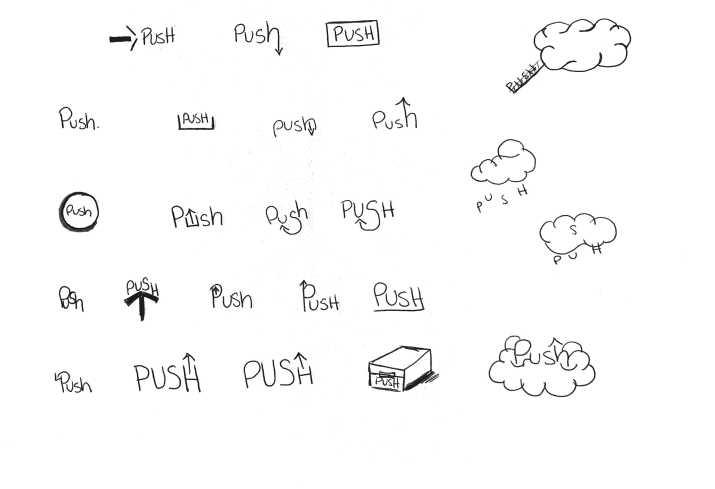 PUSH Push PUSH PUSH
Push. PUSH push Push
PUSH
Push Push Push PUSH
S
PUH
Push PUSH Push PUSH PUSH
Push PUSH PUSH PUSH Push